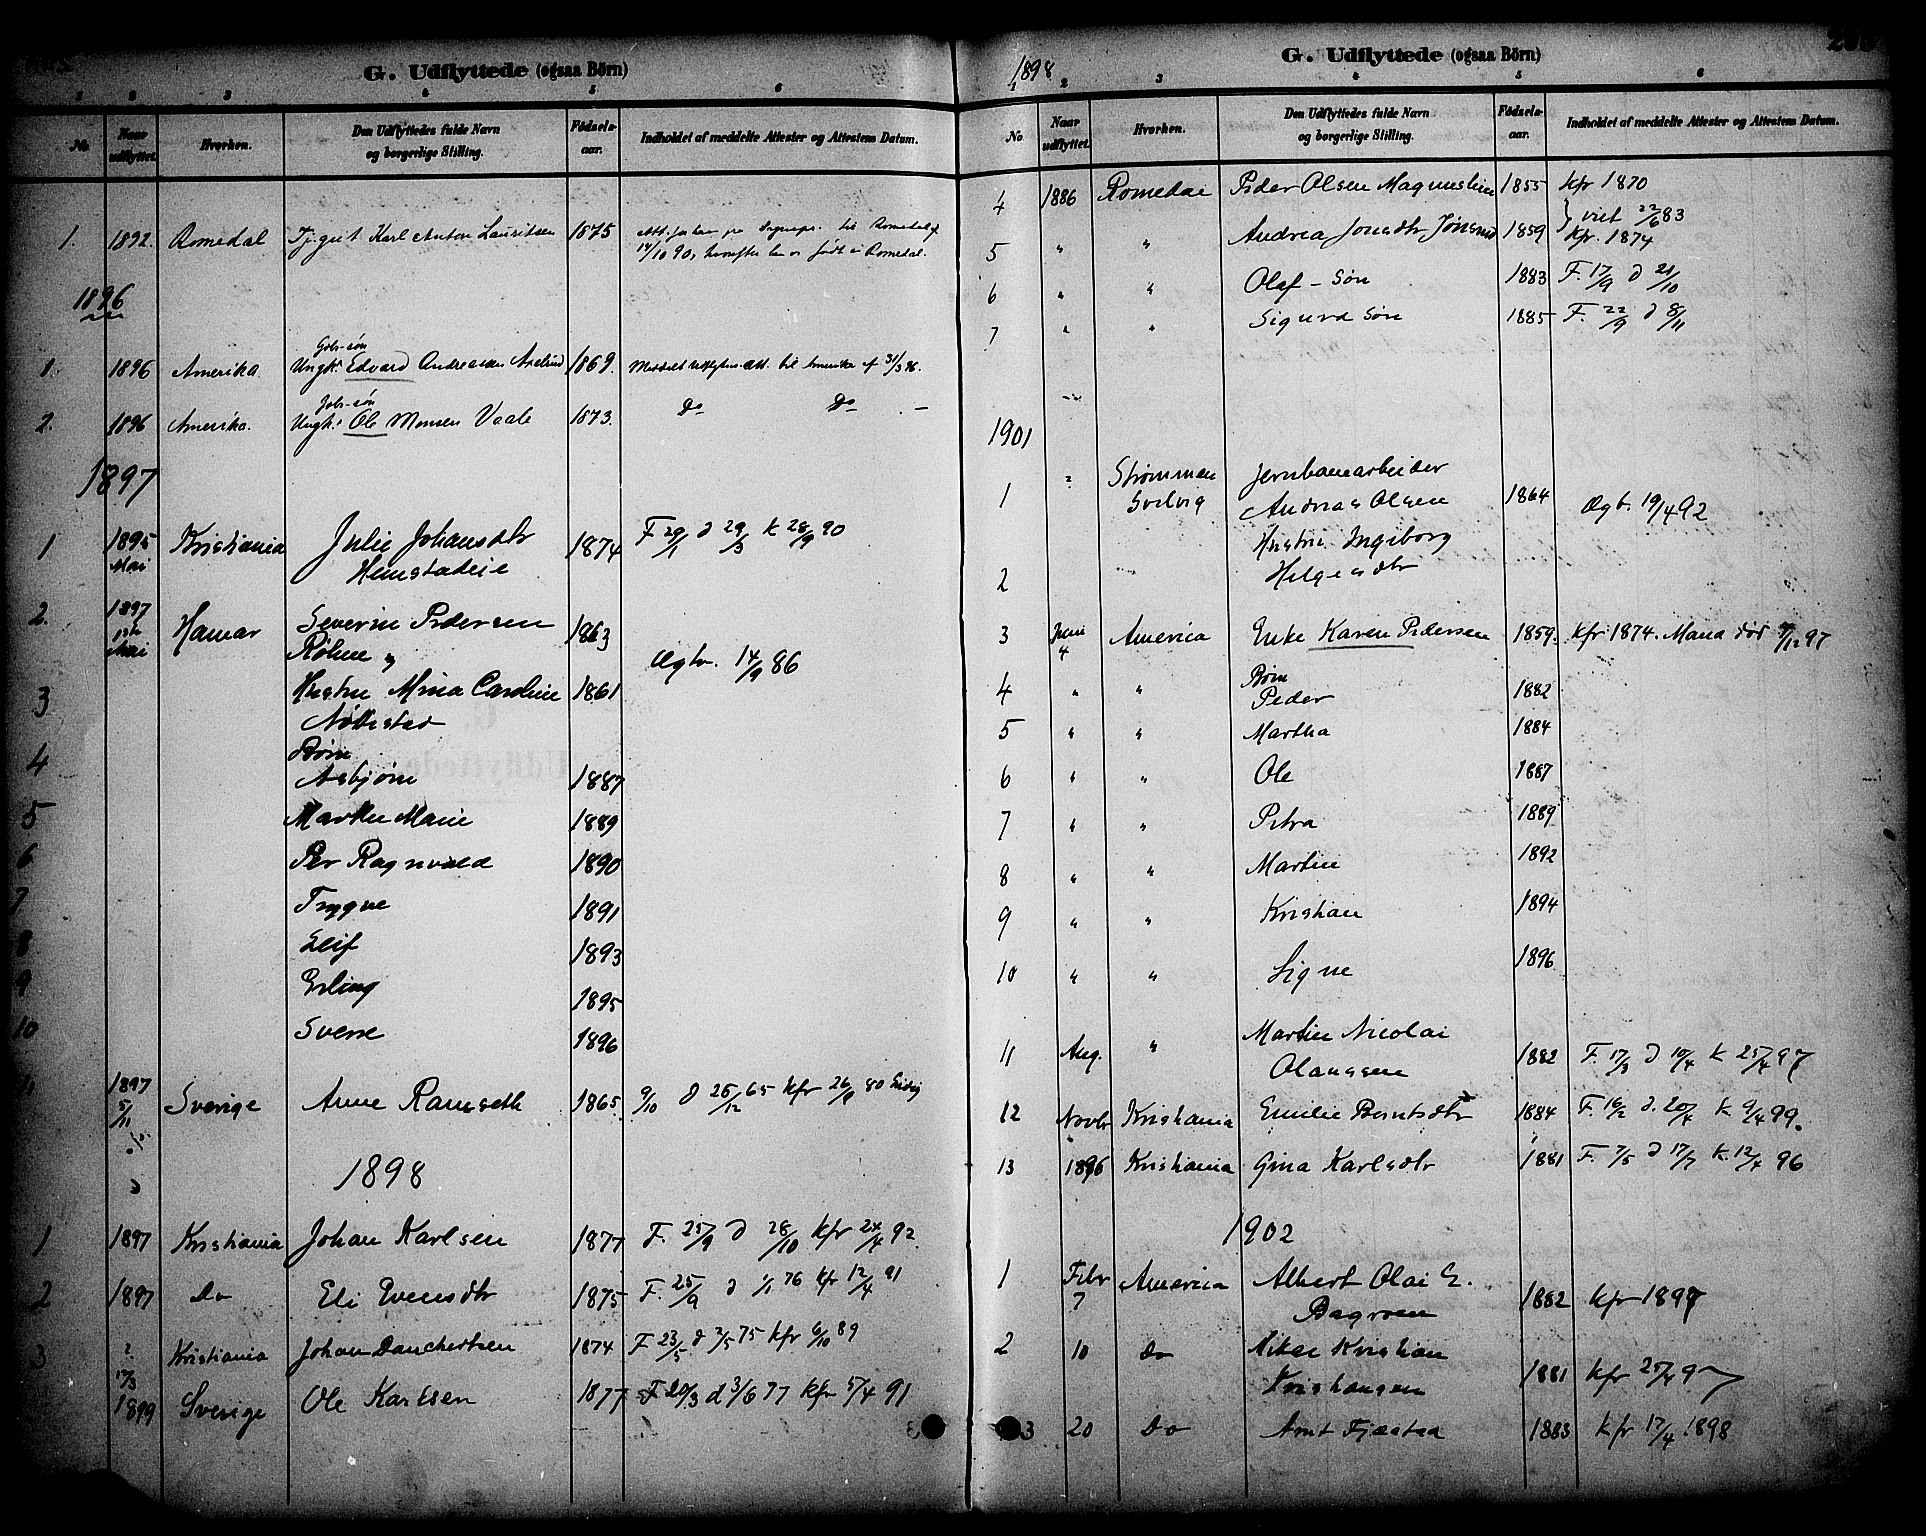 G. Udflyttede (ogsaa Börn)
1 2 3 4 5 6
No. Naar udflyttet. Hvorhen. Den Udflyttedes fulde Navn og borgerlige Stilling. Fødselsaar. Indholdet af meddelte Attester og Attestens Datum.
1. 1892. Romedal Karl Anton Lauritsen 1875 til Romedal
14/10 90, født i Romedal.
1896
Gbr-søn
1. 1896 Amerika. Ungk. Edvard Andreassen 1869. Meddelt Udflytn. att. til Amerika 31/3 96.
2. 1896 Amerika. Ungk. Ole Monsen Vaale 1873. Do Do —
1897
1 1895 Mai Kristiania Julie Johansdtr 1874 F 20/1 d 29/3 k 28/9 90
Hemstadeie
2. 1897 Mai Hamar Severin Pedersen 1863
Røhne
Ægtv. 14/9 86
3 Hustru Mina Caroline 1861
Nøttestad
4 Børn
Asbjørn 1887
5 Marthe Marie 1889
6 Per Ragnvald 1890
7 Trygve 1891
8 Leif 1893
9 Erling 1895
10 Sverre 1896
11 1897 5/11 Sverige Anne Ramseth 1865 9/10 d 26/12 65 kfr 26/9 80
1898
1 1897 Kristiania Johan Karlsen 1877 F. 25/9 d 28/10 kfr 24/4 92
2 1897 Do Eli Evensdtr 1875 F. 25/9 d 1/1 76 kfr 12/4 91
3 ? Kristiania Johan Danchertsen 1874 F 23/5 d 3/5 75 kfr 6/10 89
17/3 1899 Sverige Ole Karlsen 1877 F 20/3 d 3/6 77 kfr 5/4 91
G. Udflyttede (ogsaa Börn)
1898
1 2 3 4 5 6
No. Naar udflyttet. Hvorhen. Den Udflyttedes fulde Navn og borgerlige Stilling. Fødselsaar. Indholdet af meddelte Attester og Attestens Datum.
4 1886 Romedal Peder Olsen 1855 kfr 1870
viet 22/6 83
5 " " Andrea Jonsdtr 1859 kfr. 1874
6 " " Olaf - Søn 1883 F. 17/9 d 21/10
7 " " Sigurd Søn 1885 F. 22/9 d 8/11
1901
1 ? Strømmen Jernbanearbeider
Andreas Olsen 1864 Ægt. 19/4 92
2 Hustru Ingeborg
Helgesdtr
3 Juni 4 America Enke Karen Pedersen 1859. kfr 1874. Mand død 97
4 " " Børn
Peder 1882
5 " " Martha 1884
6 " " Ole 1887
7 " " Petra 1889
8 " " Martin 1892
9 " " Kristian 1894
10 " " Signe 1896
11 Aug. " Martin Nicolai
Olaussen 1882 F. 17/3 d 10/4 k 25/4 97
12 Novbr Kristiania Emilie Berntsdtr 1884 F. 16/2 d. 20/4 k. 9/4 99.
13 1896 Kristiania Gina Karlsdtr 1881 F. 7/5 d 17/7 k. 12/4 96
1902
1 Febr 7 America Albert Olai E.
Bagroen 1882 kfr 1897
2 10 Do Kristian
Kristiansen 1881 kfr 25/4 97
3 20 Do Arnt Fjæstad 1883 kfr 17/4 1898